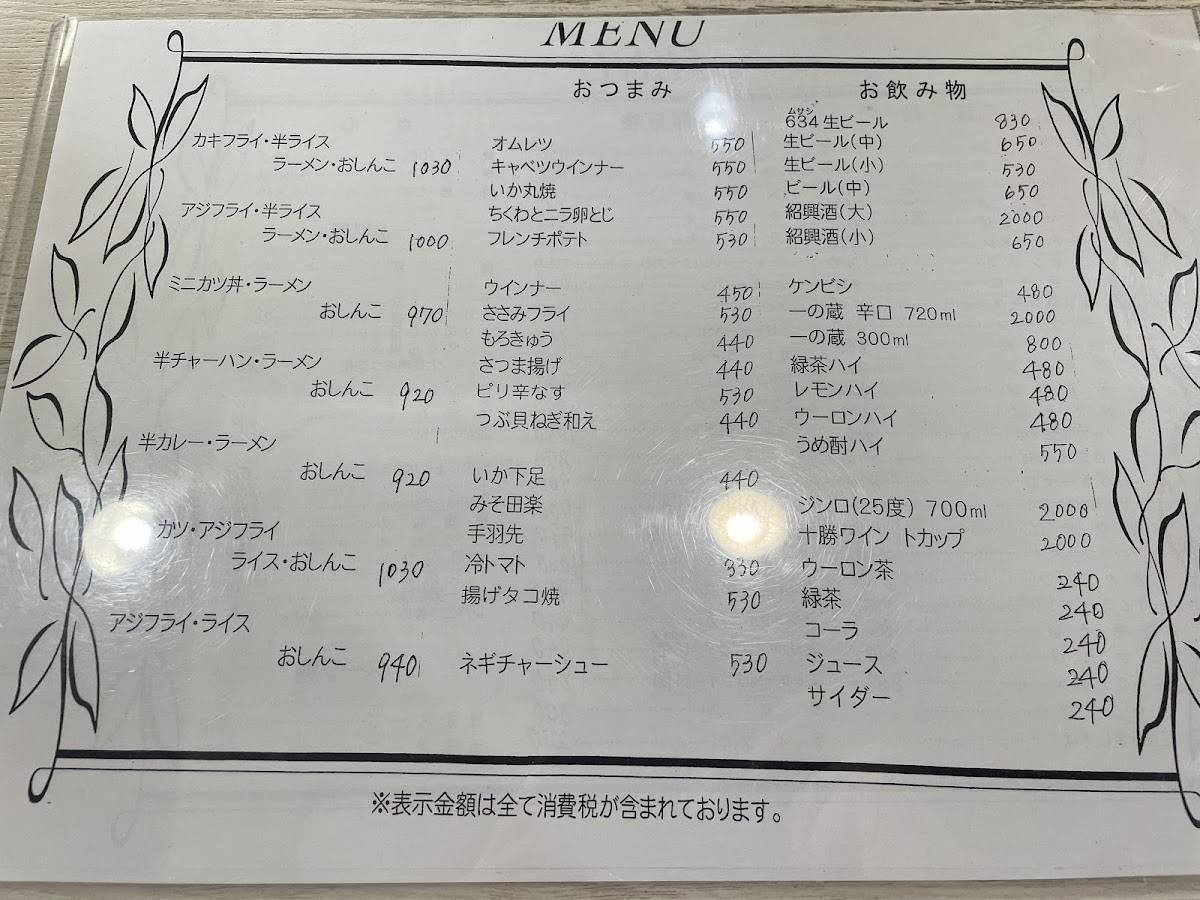 MENU
カキフライ・半ライス
ラーメン・おしんこ 1030
アジフライ・半ライス
ラーメン・おしんこ 1000
ミニカツ丼・ラーメン
おしんこ 970
半チャーハン・ラーメン
おしんこ 920
半カレー・ラーメン
おしんこ 920
カツ・アジフライ
ライス・おしんこ 1030
アジフライ・ライス
おしんこ 940
おつまみ
オムレツ 550
キャベツウインナー 550
いか丸焼 550
ちくわとニラ卵とじ 550
フレンチポテト 530
ウインナー 450
ささみフライ 530
もろきゅう 440
さつま揚げ 440
ピリ辛なす 530
つぶ貝ねぎ和え 440
いか下足 440
みそ田楽
手羽先
冷トマト 330
揚げタコ焼 530
ネギチャーシュー 530
お飲み物
ムサシ
634生ビール 830
生ビール(中) 650
生ビール(小) 530
ビール(中) 650
紹興酒(大) 2000
紹興酒(小) 650
ケンビシ 480
一の蔵 辛口 720ml 2000
一の蔵 300ml 800
緑茶ハイ 480
レモンハイ 480
ウーロンハイ 480
うめ酎ハイ 550
ジンロ(25度) 700ml 2000
十勝ワイン トカップ 2000
ウーロン茶 240
緑茶 240
コーラ 240
ジュース 240
サイダー 240
※表示金額は全て消費税が含まれております。